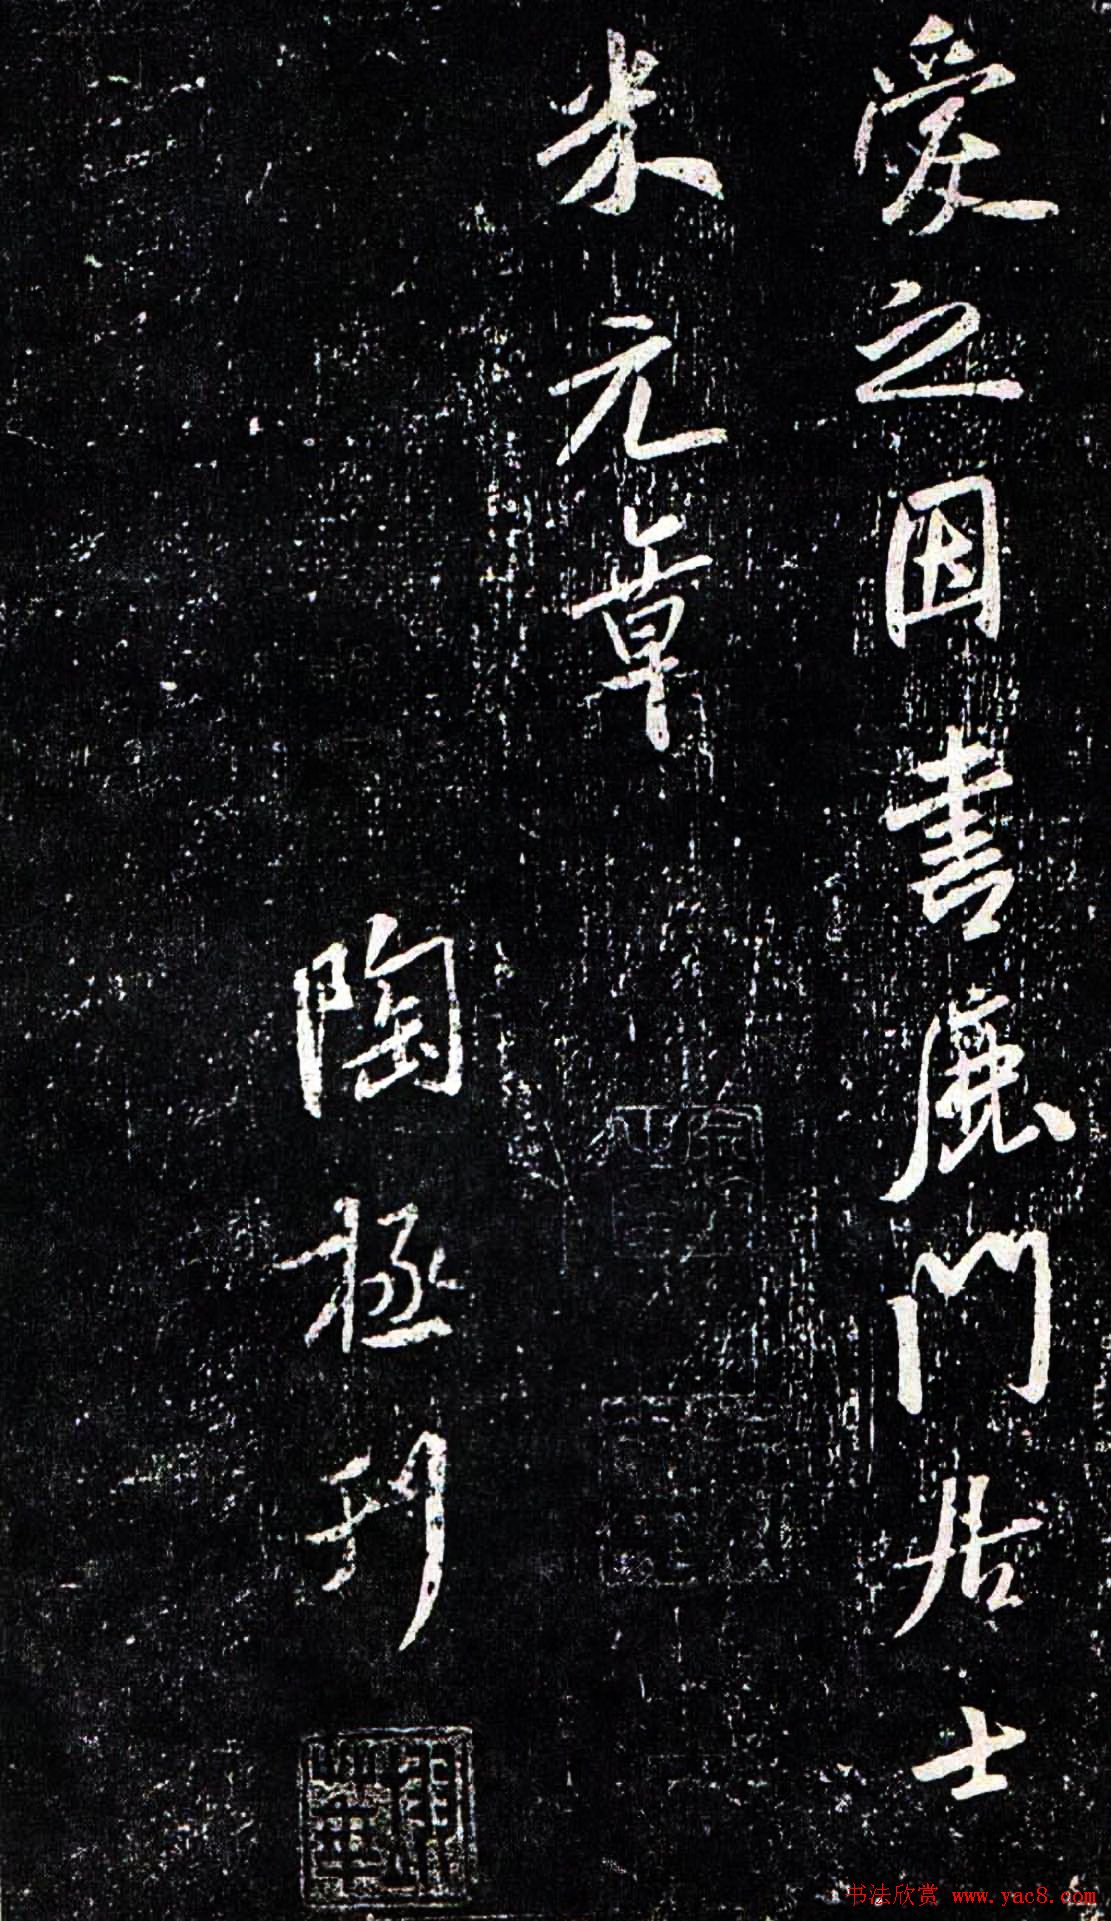 愛之因書鹿門居士
米元章
陶拯刊
书法欣赏 www.yac8.com